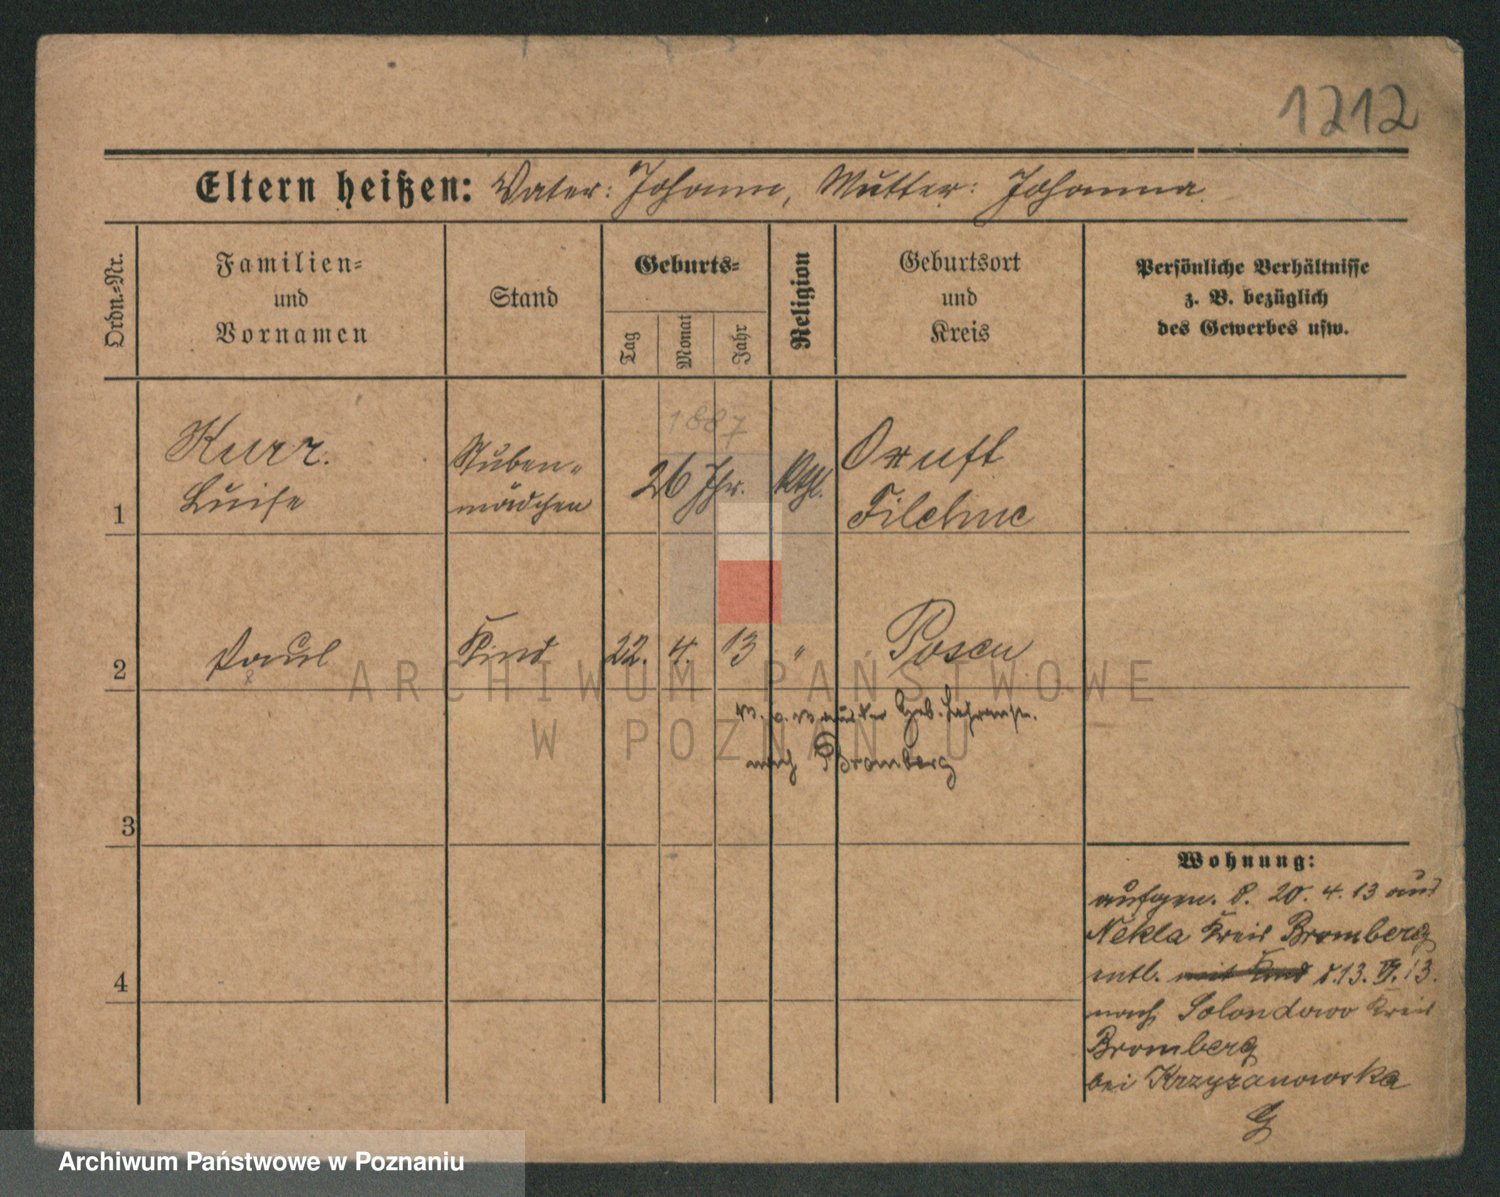 1212
Eltern heißen: Vater: Johann, Mutter: Johanna.
Ordn.-Nr.
Familien-
und
Vornamen
Stand
Geburts-
Tag
Monat
Jahr
Religion
Geburtsort
und
Kreis
Persönliche Verhältnisse
z. B. bezüglich
des Gewerbes usw.
1887
1
Kurr.
Luise
Stuben-
mädchen
26 Jhr.
Kthl.
Filehne
2
Paul
Kind
22. 4. 13
"
Posen
nach Bromberg
3
4
Wohnung:
aufgen. d. 20. 4. 13 aus
Nekla Kreis Bromberg
entl. mit Kind d. 13. VI. 13.
nach Solondowo Kreis
Bromberg
bei Krzyzanowska
ARCHIWUM PAŃSTWOWE
W POZNANIU
Archiwum Państwowe w Poznaniu